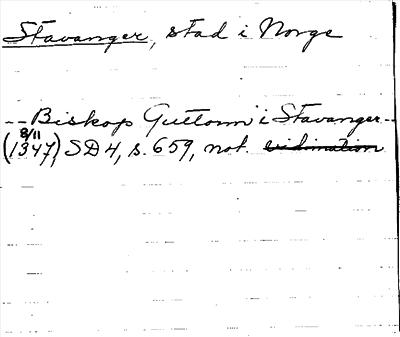 Stavanger, stad i Norge
-- Biskop Guttorm i Stavanger --
8/11
(1347) SD 4, s. 659, not. vidimation